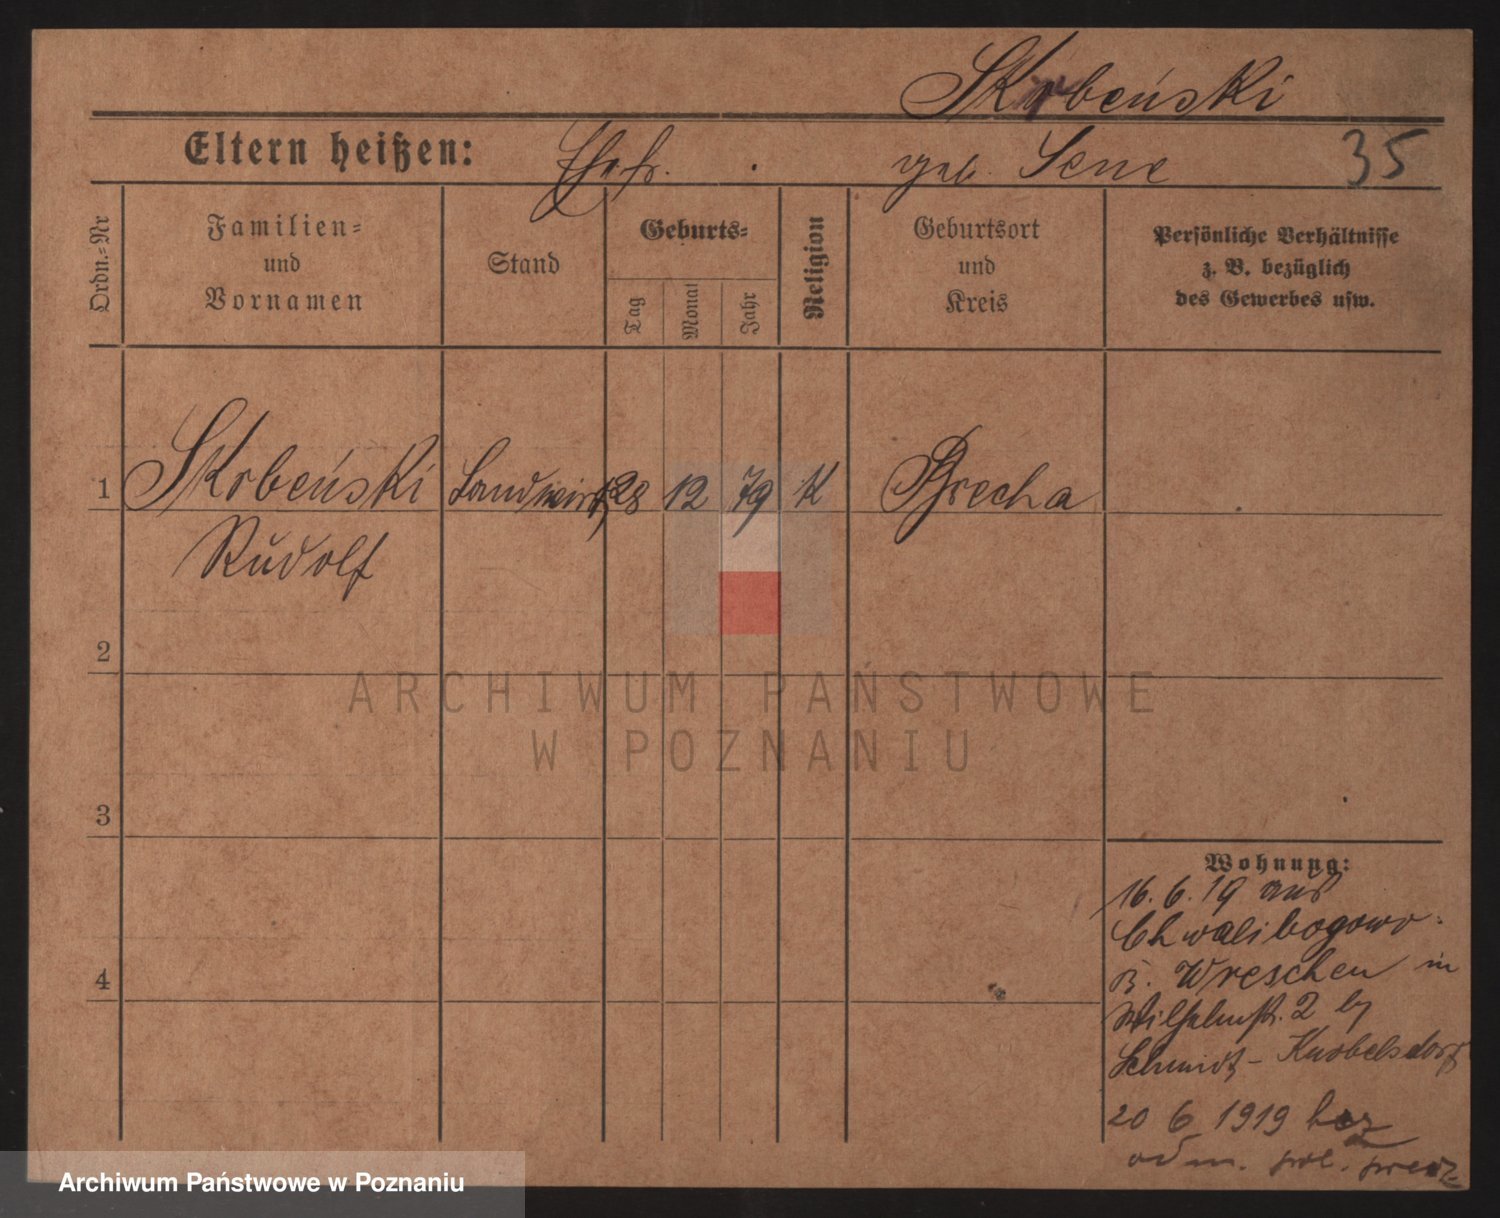 Skrbeński
Eltern heißen: Ehefr. . geb. Sene 35
Ordn.=Nr
Familien=
und
Vornamen
Stand
Geburts=
Tag
Monat
Jahr
Religion
Geburtsort
und
Kreis
Persönliche Verhältnisse
z. B. bezüglich
des Gewerbes usw.
1 Skrbeński Landwirt 28 12 79 K Brecha
Rudolf
2
ARCHIWUM PAŃSTWOWE
W POZNANIU
3
4
Wohnung:
16.6.19 aus
Chwalibogowo
Wreschen in
Wilhelmstr. 2 by
Schmidt - Knobelsdorf
20 6 1919 bez
odm. pol.
Archiwum Państwowe w Poznaniu